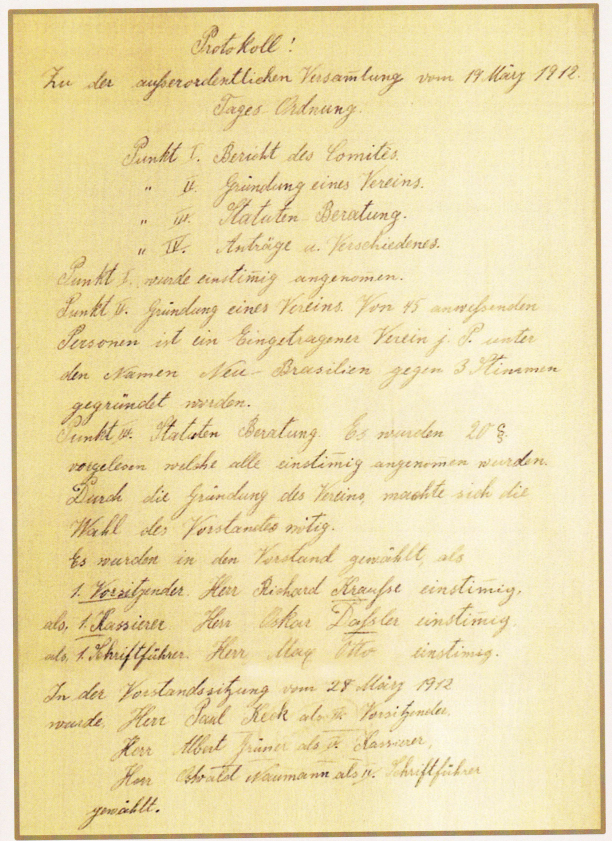 Protokoll!
Zu der außerordentlichen Versam̅lung vom 19 März 1912.
Tages Ordnung.
Punkt I. Bericht des Comites.
" II. Gründung eines Vereins.
" III. Statuten Beratung.
" IV. Anträge u. Verschiedenes.
Punkt I. wurde einstim̅ig angenom̅en.
Punkt II. Gründung eines Vereins. Von 45 anweßenden
Personen ist ein Eingetragener Verein j. P. unter
den Namen Neu-Brasilien gegen 3 Stimmen
gegründet worden.
Punkt III. Statuten Beratung. Es wurden 20 §.
vorgelesen welche alle einstim̅ig angenom̅en wurden.
Durch die Gründung des Vereins, machte sich die
Wahl des Vorstandes nötig.
Es wurden in den Vorstand gewählt, als
1. Vorsitzender. Herr Richard Kraufse einstim̅ig,
als, 1. Kassierer Herr Oskar Daßler einstim̅ig
als, 1. Schriftführer. Herr Max Otto einstim̅ig.
In der Vorstandssitzung vom 28 März 1912
wurde, Herr Paul Keck als II. Vorsitzender,
Herr Albert Grüner als II. Kassierer,
Herr Oswald Naumann als II. Schriftführer
gewählt.